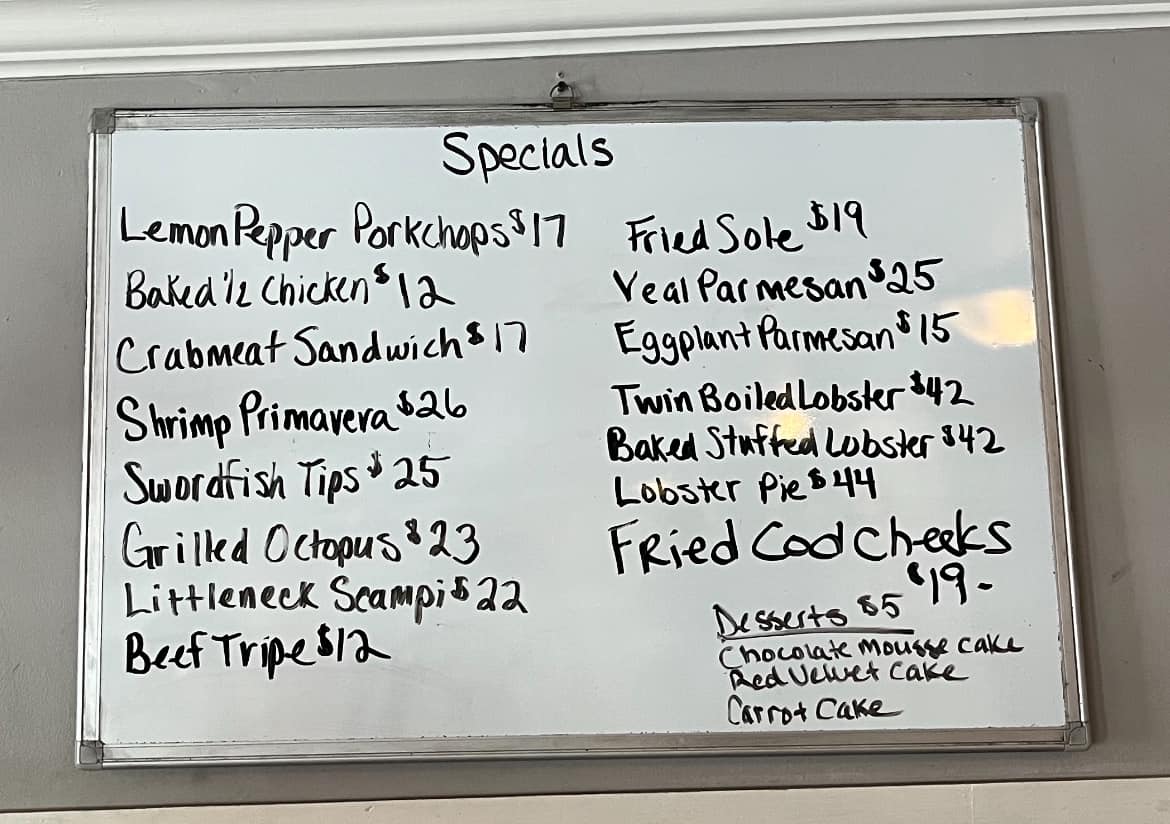 Specials
Lemon Pepper Porkchops $17
Baked 1/2 Chicken $12
Crabmeat Sandwich $17
Shrimp Primavera $26
Swordfish Tips $25
Grilled Octopus $23
Littleneck Scampi $22
Beef Tripe $12
Fried Sole $19
Veal Parmesan $25
Eggplant Parmesan $15
Twin Boiled Lobster $42
Baked Stuffed Lobster $42
Lobster Pie $44
Fried Cod Cheeks
$19-
Desserts $5
Chocolate Mousse Cake
Red Velvet Cake
Carrot Cake